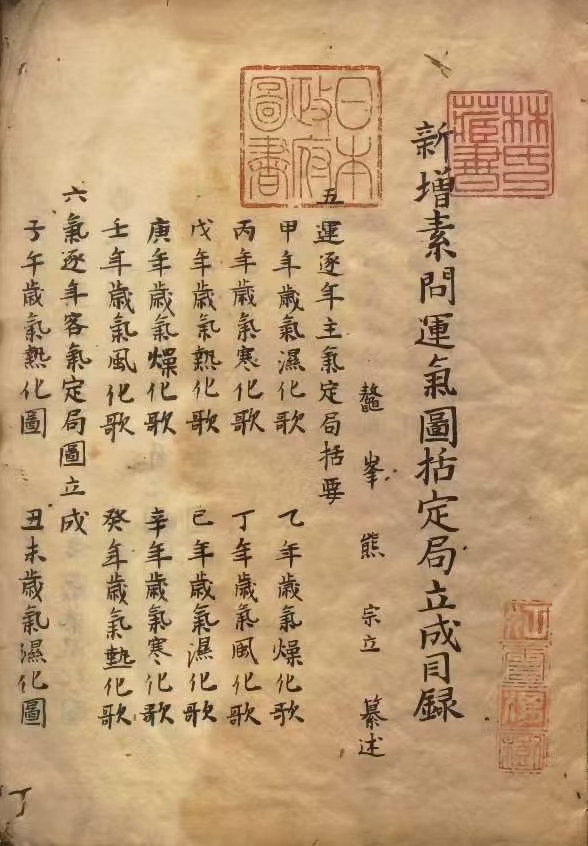 林氏藏書
新增素問運氣圖括定局立成目録
江雲渭樹
鼇峯熊宗立纂述
日本政府圖書
五運逐年主氣定局括要
甲年歲氣濕化歌 乙年歲氣燥化歌
丙年歲氣寒化歌 丁年歲氣風化歌
戊年歲氣熱化歌 己年歲氣濕化歌
庚年歲氣燥化歌 辛年歲氣寒化歌
壬年歲氣風化歌 癸年歲氣熱化歌
六氣逐年客氣定局圖立成
子午歲氣熱化圖 丑未歲氣濕化圖
丁